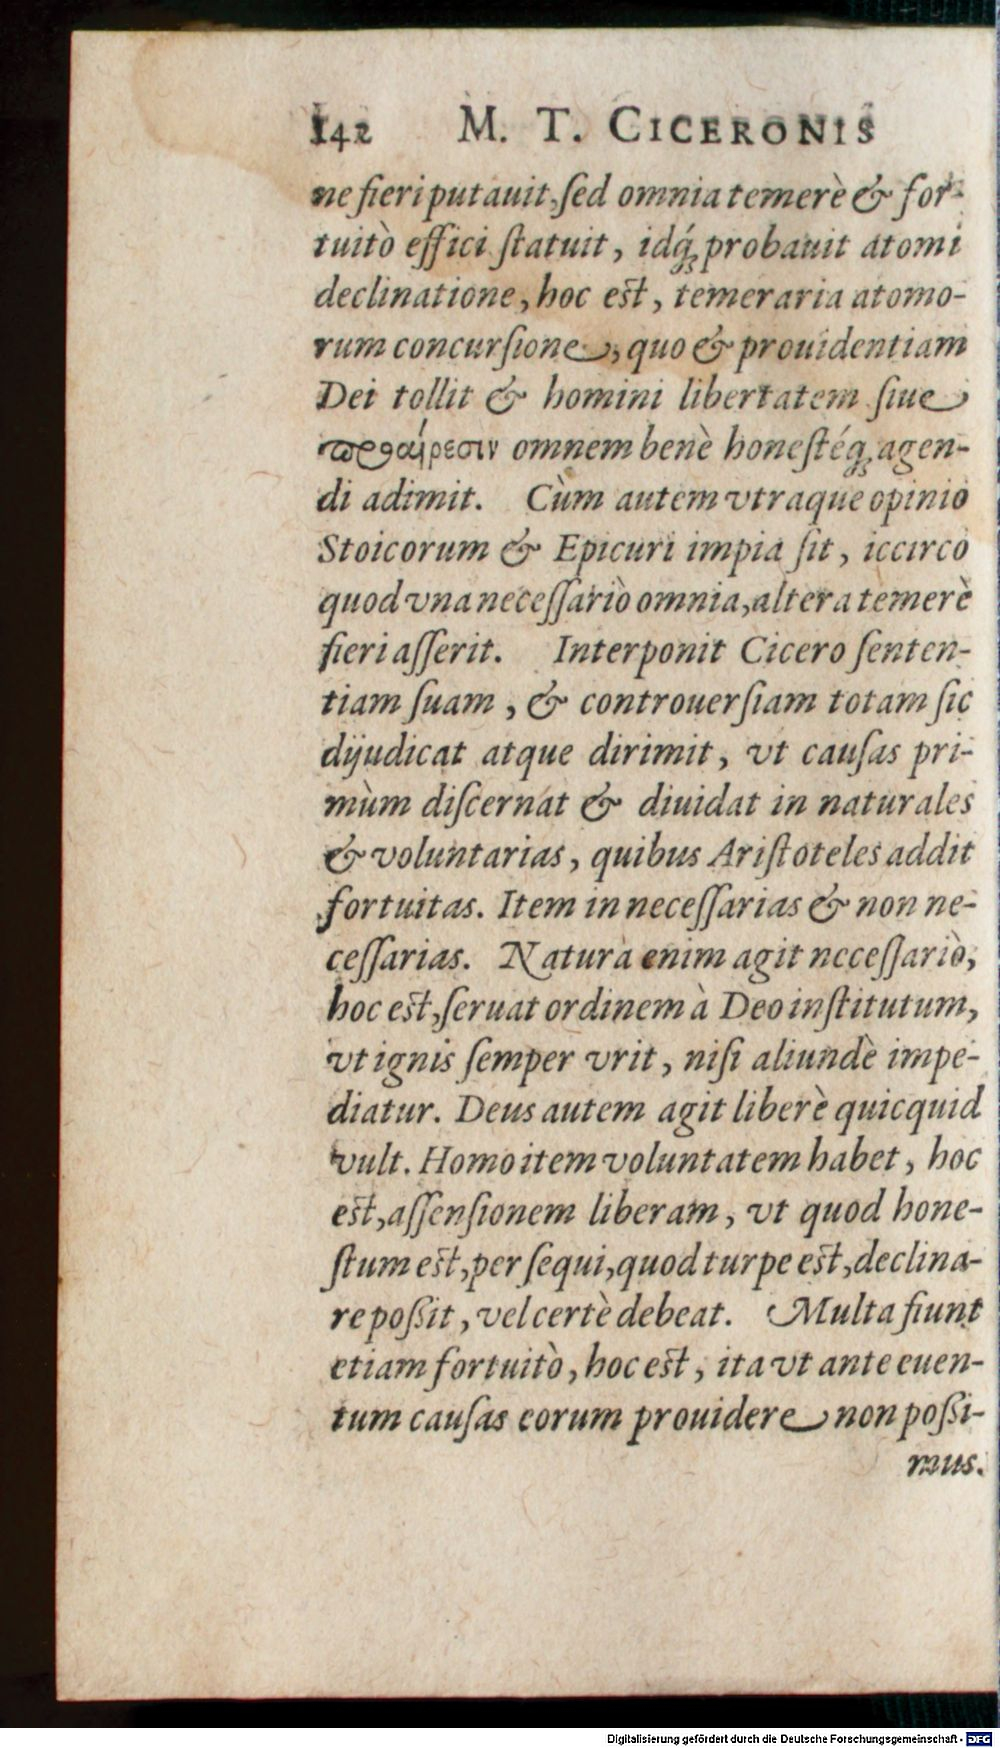 142 M. T. CICERONIS
ne fieri putauit, ſed omnia temerè & for-
tuitò effici ſtatuit, idq́ꝫ probauit atomi
declinatione, hoc eſt, temeraria atomo-
rum concurſione, quo & prouidentiam
Dei tollit & homini libertatem ſiue
προαίρεσιν omnem benè honeſtéqꝫ agen-
di adimit. Cùm autem vtraque opinio
Stoicorum & Epicuri impia ſit, iccirco
quod vna neceſſariò omnia, altera temerè
fieri aſſerit. Interponit Cicero ſenten-
tiam ſuam, & controuerſiam totam ſic
dijudicat atque dirimit, vt cauſas pri-
mùm diſcernat & diuidat in naturales
& voluntarias, quibus Ariſtoteles addit
fortuitas. Item in neceſſarias & non ne-
ceſſarias. Natura enim agit neceſſariò,
hoc eſt, ſeruat ordinem à Deo inſtitutum,
vt ignis ſemper vrit, niſi aliundè impe-
diatur. Deus autem agit liberè quicquid
vult. Homo item voluntatem habet, hoc
eſt, aſſenſionem liberam, vt quod hone-
ſtum eſt, perſequi, quod turpe eſt, declina-
re poſsit, vel certè debeat. Multa fiunt
etiam fortuitò, hoc eſt, ita vt ante euen-
tum cauſas eorum prouidere non poſsi-
mus.
Digitalisierung gefördert durch die Deutsche Forschungsgemeinschaft - DFG